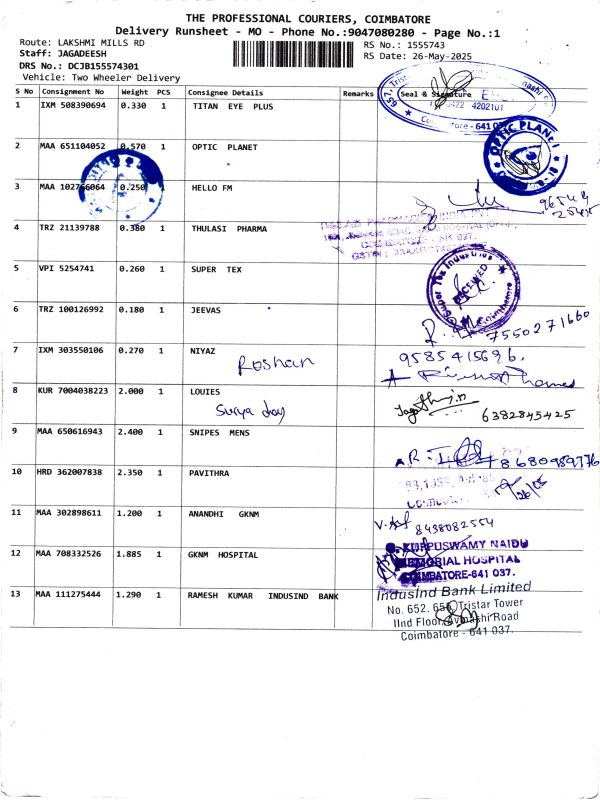 THE PROFESSIONAL COURIERS, COIMBATORE
Delivery Runsheet - MO - Phone No.:9047080280 - Page No.:1
Route: LAKSHMI MILLS RD
Staff: JAGADEESH
DRS No.: DCJB155574301
Vehicle: Two Wheeler Delivery
RS No.: 1555743
RS Date: 26-May-2025
S No Consignment No Weight PCS Consignee Details Remarks Seal & Signature
1 IXM 508390694 0.330 1 TITAN EYE PLUS
0422 4202101
641 037
2 MAA 651104052 0.570 1 OPTIC PLANET
OPTIC PLANET
3 MAA 102766064 0.250 1 HELLO FM
4 TRZ 21139788 0.380 1 THULASI PHARMA
5 VPI 5254741 0.260 1 SUPER TEX
Super Tex Industries
RECEIVED
Coimbatore
6 TRZ 100126992 0.180 1 JEEVAS
7550271660
7 IXM 303550106 0.270 1 NIYAZ
Roshan
9585415696.
8 KUR 7004038223 2.000 1 LOUIES
Surya
6382845425
9 MAA 650616943 2.400 1 SNIPES MENS
8680989776
10 HRD 362007838 2.350 1 PAVITHRA
26/05
11 MAA 302898611 1.200 1 ANANDHI GKNM
8438082554
12 MAA 708332526 1.885 1 GKNM HOSPITAL
KUPPUSWAMY NAIDU
MEMORIAL HOSPITAL
COIMBATORE-641 037.
13 MAA 111275444 1.290 1 RAMESH KUMAR INDUSIND BANK
IndusInd Bank Limited
No. 652. 656, Tristar Tower
IInd Floor, Avinashi Road
Coimbatore - 641 037.